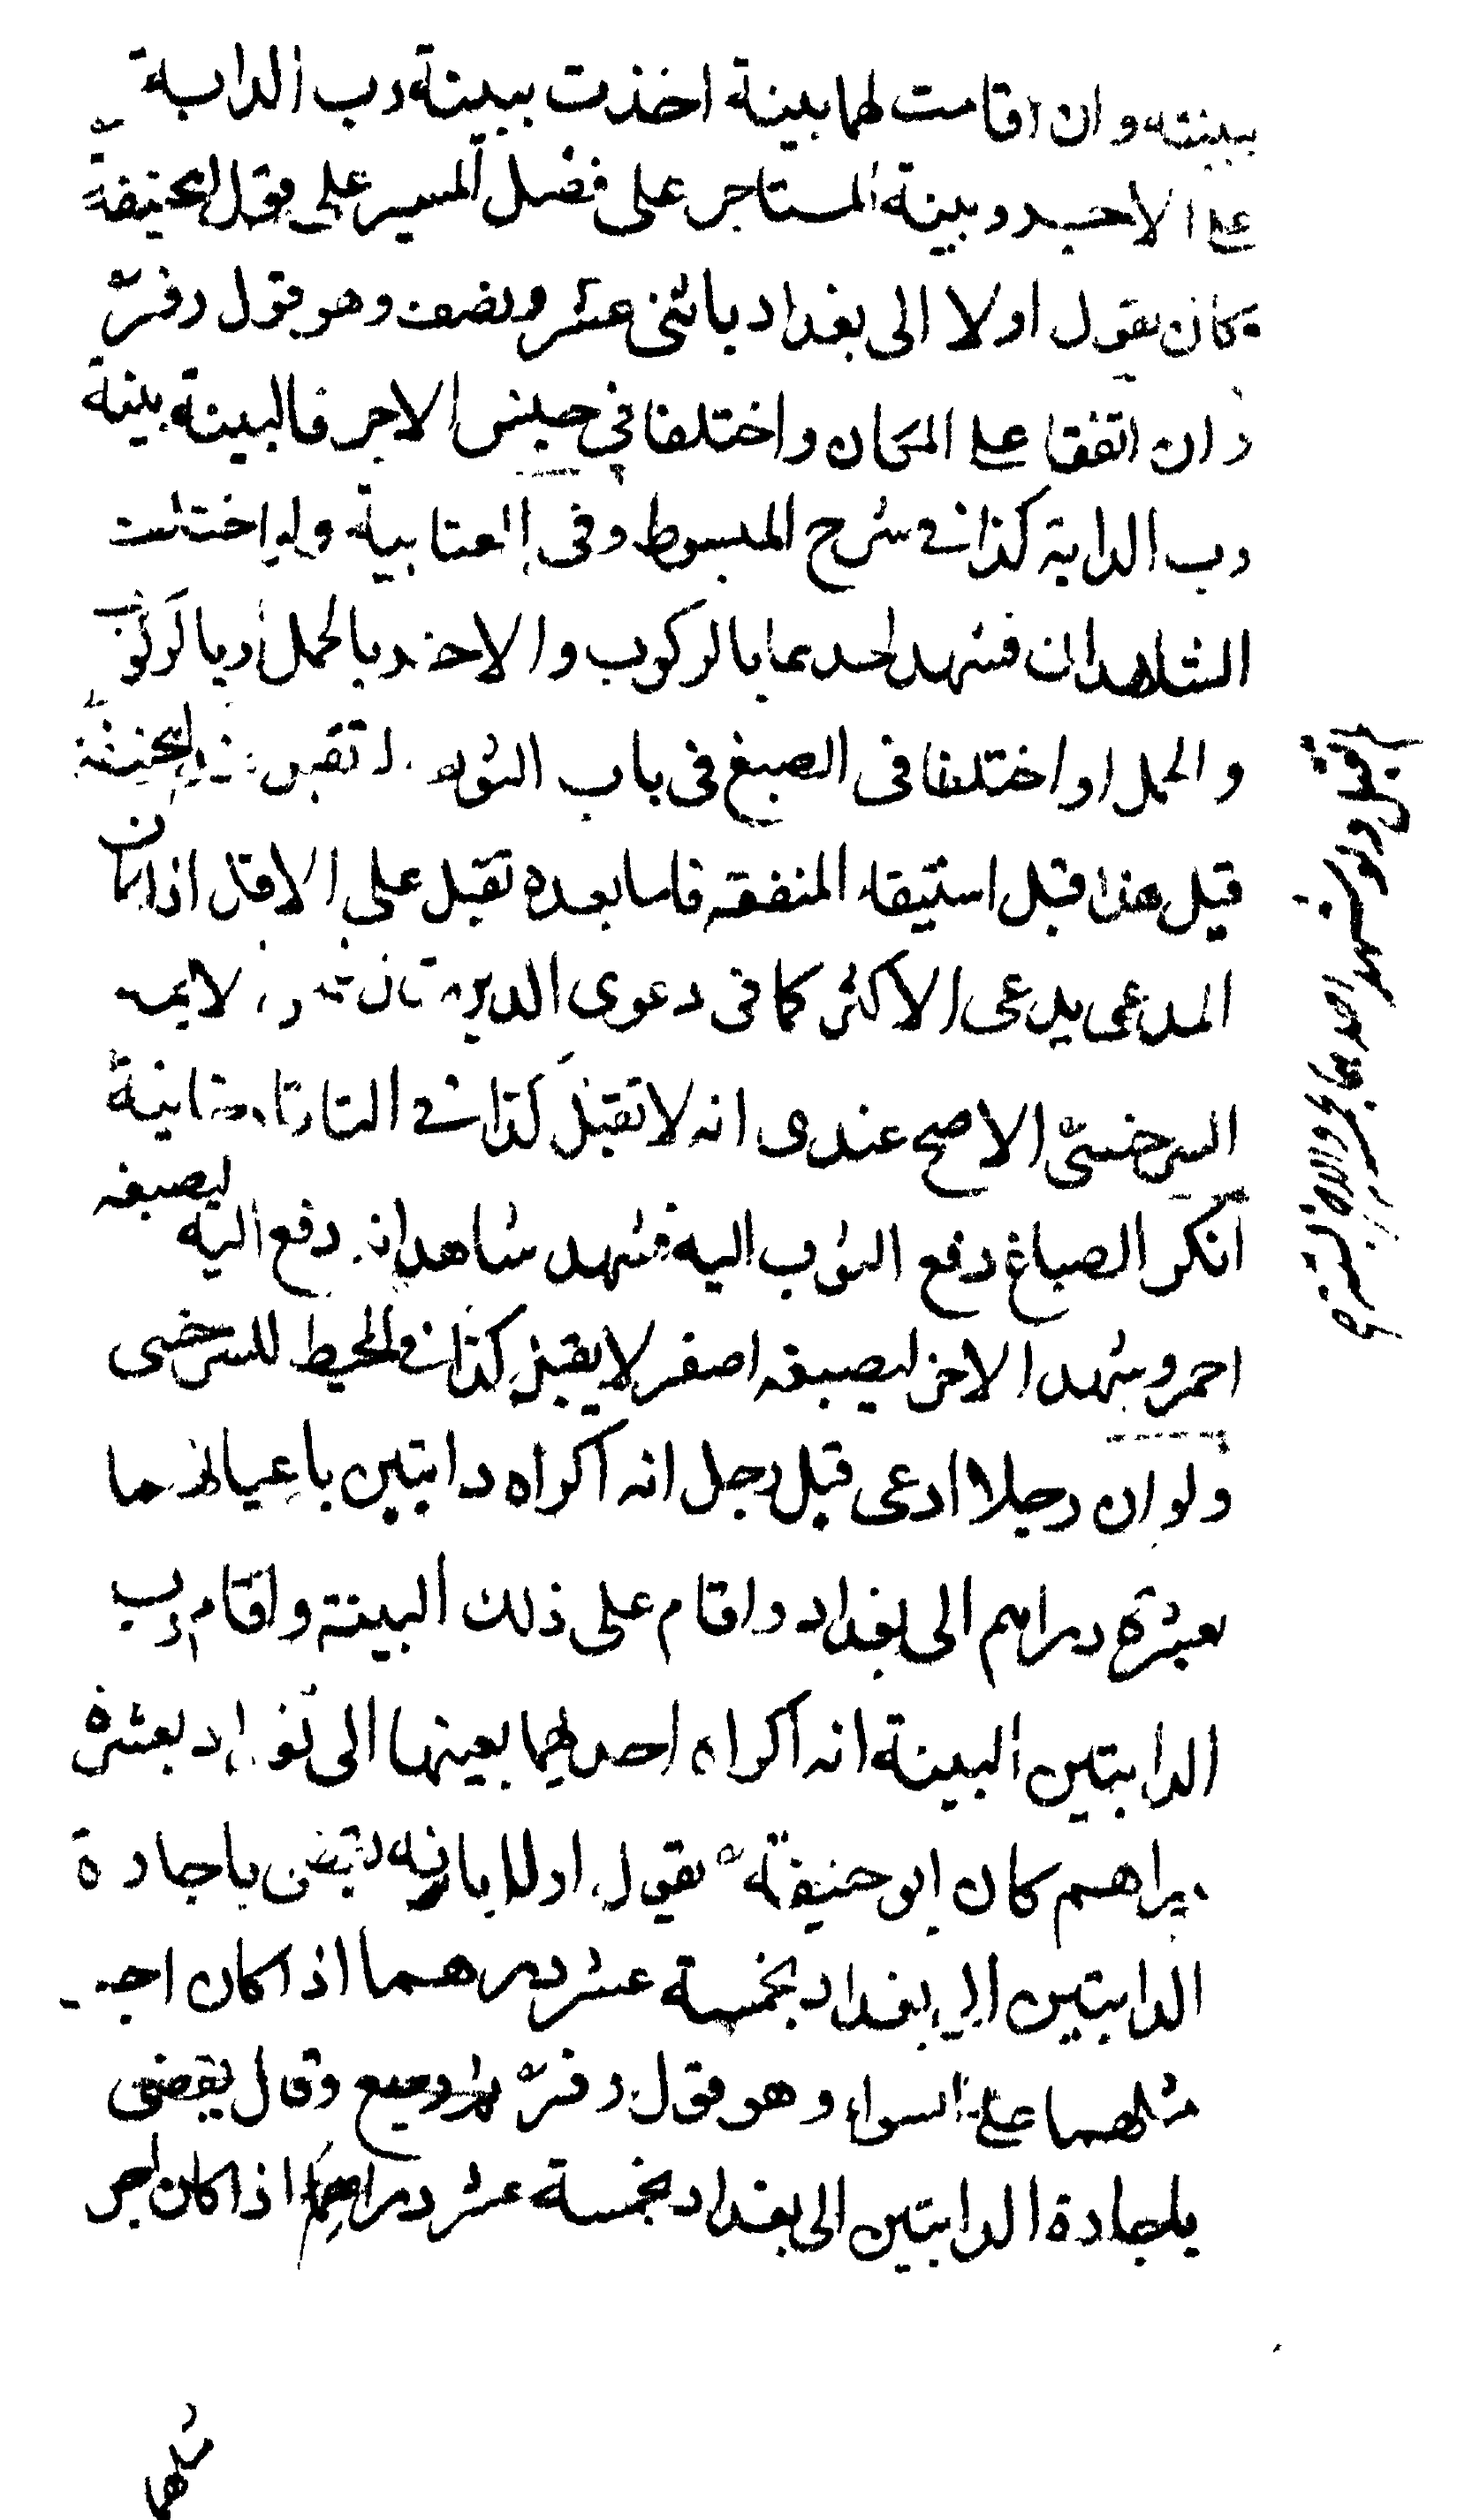 ببينته وان اقامت لهما بينة اخذت ببينة رب الدابة
على الاجر وبينة المستاجر على فضل المسير على قول ابى حنيفة
كان يقول اولا الى بغداد باثنى عشر ونصف وهو قول زفر
وان اتفقا على المكان واختلفا فى جنس الاجر فالبينة بينة
رب الدابة كذا فى شرح المبسوط وفى العتابية ولو اختلف
الشاهدان فشهد احدهما بالركوب والاخر بالحمل او بالركوب
والحمل او اختلفا فى الصبغ فى باب الثوب لا تقبل ابى حنيفة
قيل هذا قبل استيفاء المنفعة فاما بعده تقبل على الاقل اذا كان
المدعى يدعى الاكثر كما فى دعوى الدين لايمه
السرخسى الاصح عندى انه لا تقبل كذا فى التاتارخانية
انكر الصباغ دفع الثوب اليه فشهد شاهدانه دفع اليه ليصبغه
احمر وشهد الاخر ليصبغه اصفر لا يقبل كذا فى المحيط للسرخسى
ولو ان رجلا ادعى قبل رجل انه اكراه دابتين باعيانهما
بعشرة دراهم الى بغداد واقام على ذلك البينة واقام رب
الدابتين البينة انه اكراه احديهما بعينها الى بغداد بعشرة
دراهم كان ابو حنيفة يقول اولا بانه يقضى باجارة
الدابتين الى بغداد بخمسة عشر درهما اذا كان اجر
مثلهما على السواء وهو قول زفر ثم رجع وقال يقضى
باجارة الدابتين الى بغداد بخمسة عشر دراهما اذا كان اجر
مثلهما